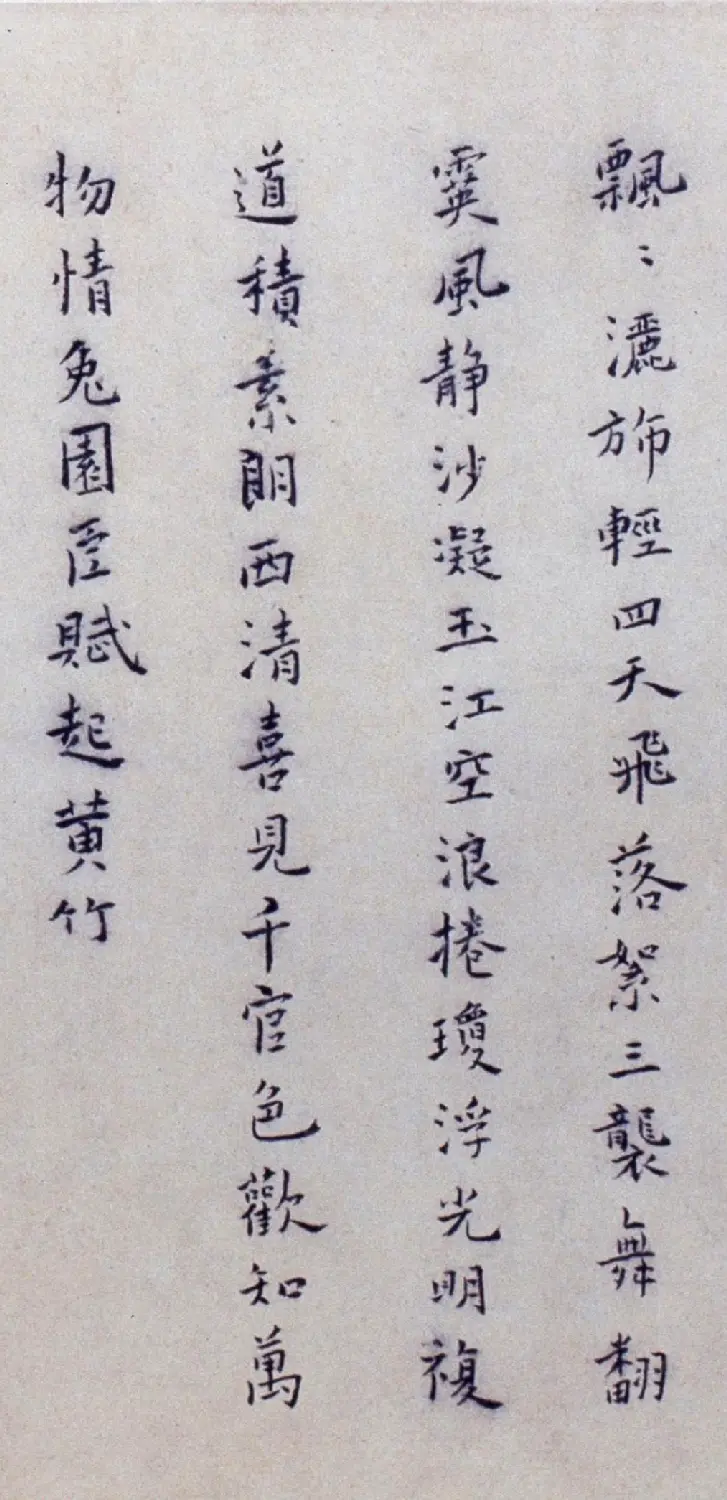 飄〻灑斾輕四天飛落絮三襲舞翻
霙風静沙凝玉江空浪捲瓊浮光明複
道積素朗西清喜見千官色歡知萬
物情兔園臣賦起黄竹